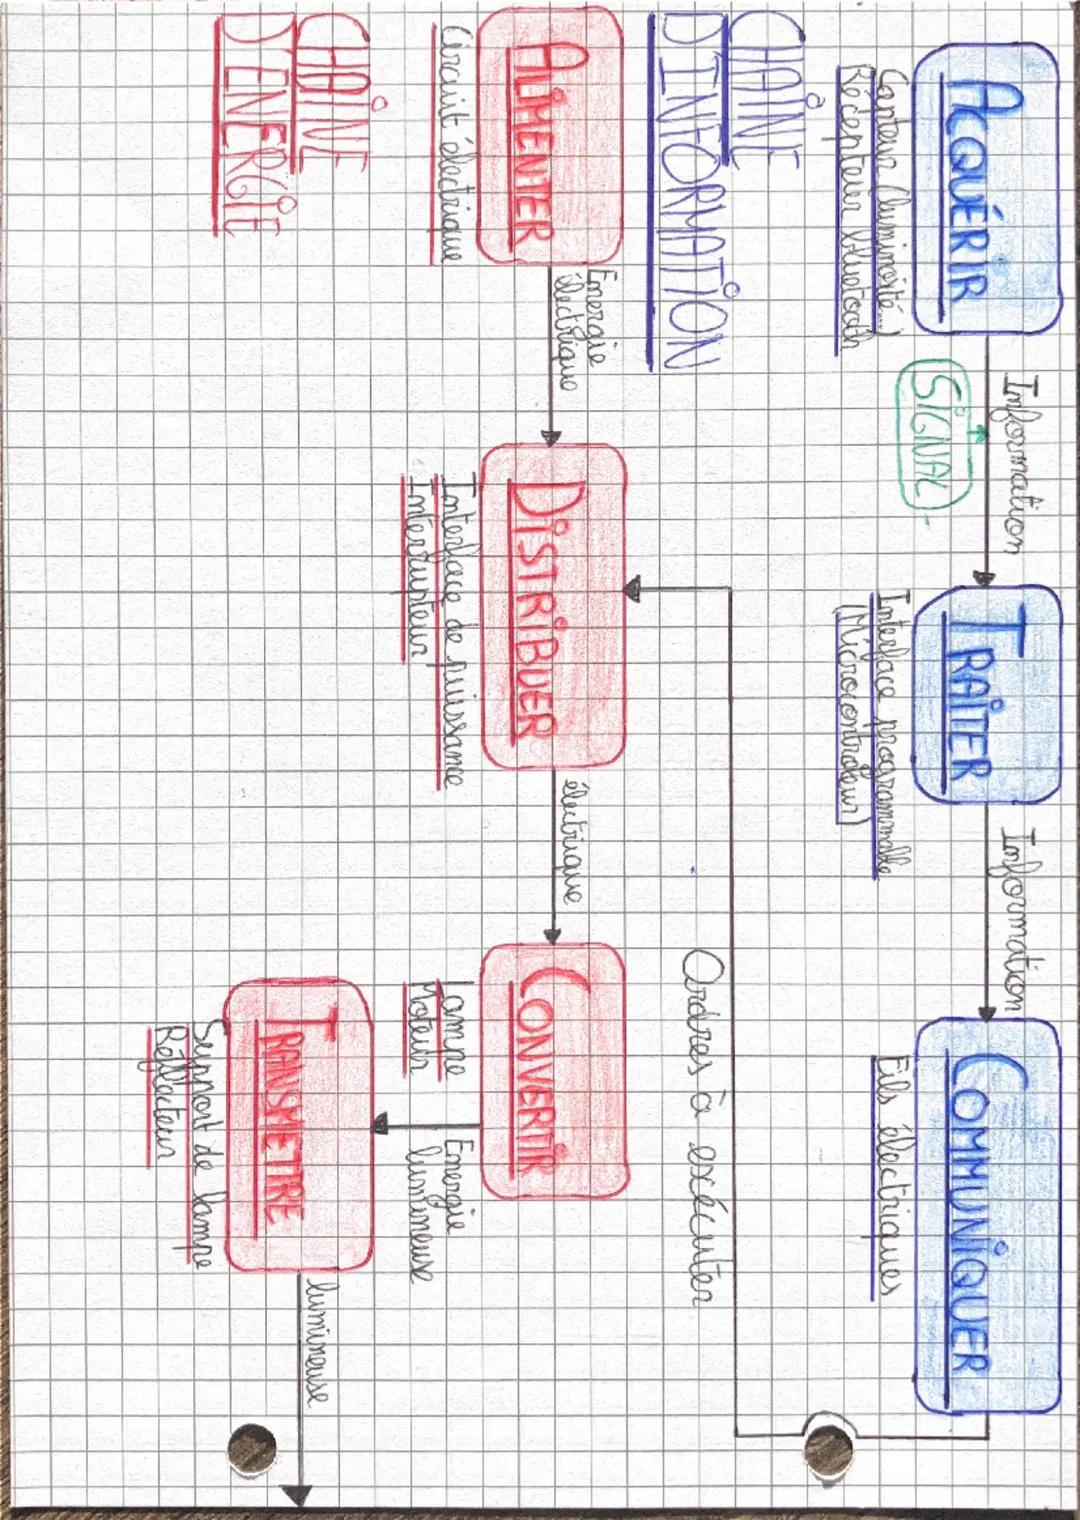 ACQUÉRIR
Capteur (luminosité...)
Récepteur bluetooth
Information
SIGNAL
TRAITER
Interface programmable
(Microcontrôleur)
Information
COMMUNIQUER
Fils électriques
CHAÎNE
D'INFORMATION
Ordres à exécuter
ALIMENTER
Circuit électrique
Energie
électrique
DISTRIBUER
Interface de puissance
Interrupteur
électrique
CONVERTIR
Lampe
Moteur
Energie
lumineuse
CHAÎNE
D'ENERGIE
TRANSMETTRE
Support de lampe
Réflecteur
lumineuse